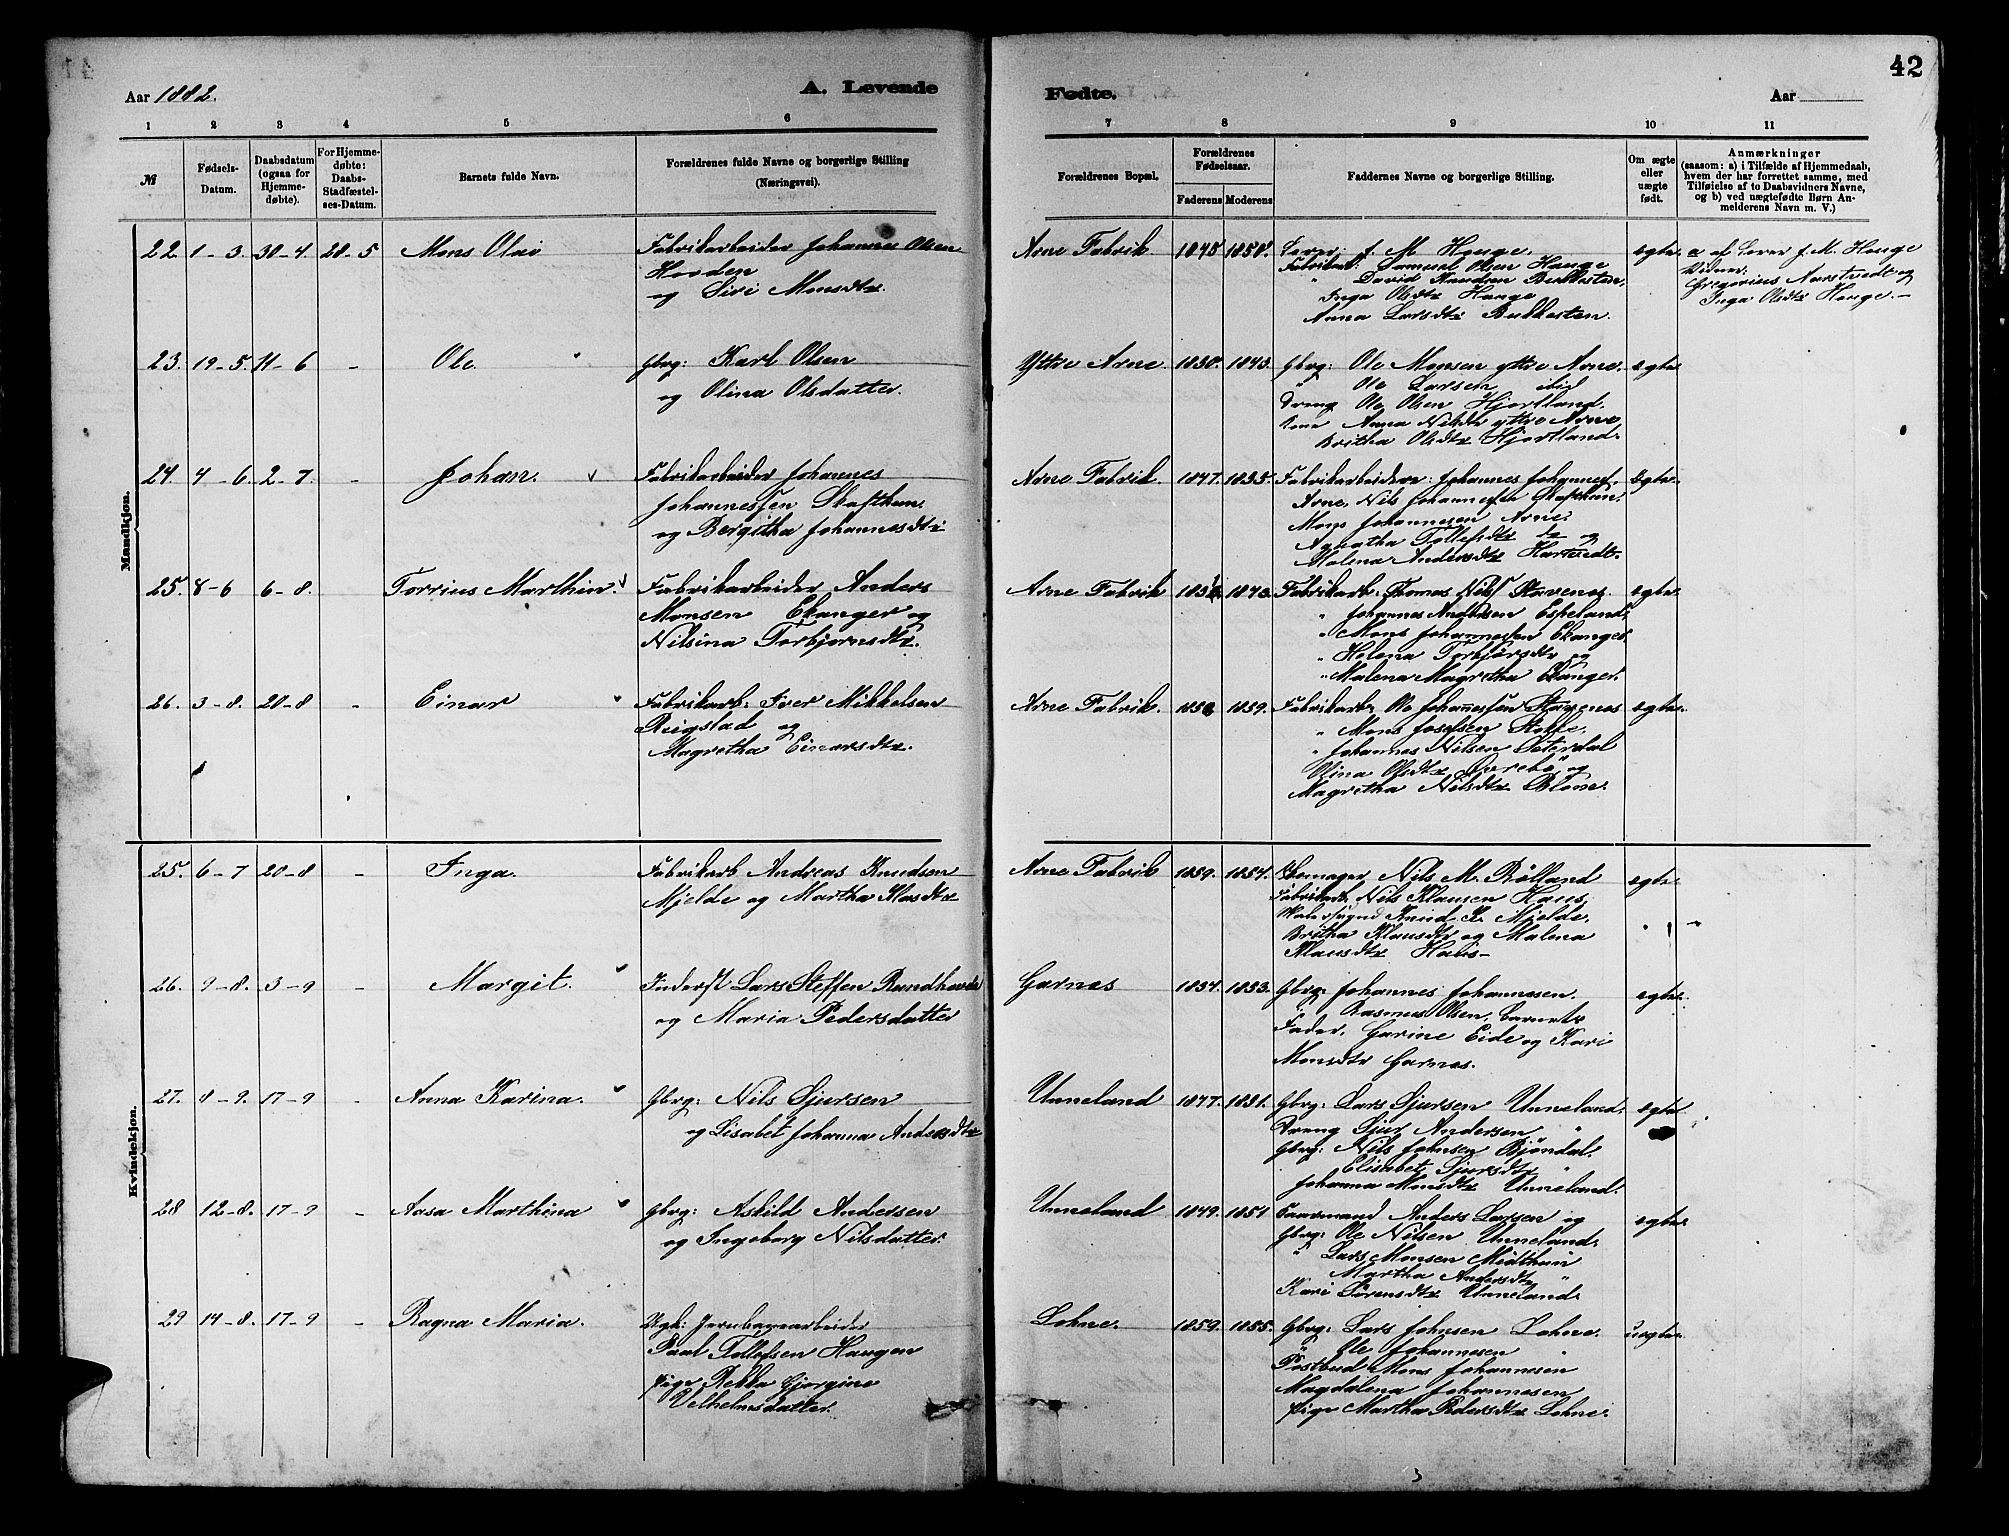 42
Aar 1882.
A. Levende
Fødte.
Aar
1 2 3 4 5 6 7 8 9 10 11
№
Fødsels-
Datum.
Daabsdatum
(ogsaa for
Hjemme-
døbte).
For Hjemme-
døbte:
Daabs-
Stadfæstel-
ses-Datum.
Barnets fulde Navn.
Forældrenes fulde Navne og borgerlige Stilling
(Næringsvei).
Forældrenes Bopæl.
Forældrenes
Fødselsaar.
Faderens Moderens
Faddernes Navne og borgerlige Stilling.
Om ægte
eller
uægte
født.
Anmærkninger
(saasom: a) i Tilfælde af Hjemmedaab,
hvem der har forrettet samme, med
Tilføielse af to Daabsvidners Navne,
og b) ved uægtefødte Børn An-
melderens Navn m. V.)
Mandkjøn.
22. 1-3. 30-4 28-5 Mons Olai
Fabrikarbeider Johannes Olsen
Hovden
og Siri Monsdtr.
Arne Fabrik 1845 1850.
Lærer J. M. Hauge.
Fabrikarb: Samuel Olsen Hauge
" David Knudsen Bukkesten,
Inga Olsdtr Hauge
Anna Larsdtr Bukkesten.
ægte.
a af Lærer J. M. Hauge
Vidner:
Gregorius Aarstvedt og
Inga Olsdtr Hauge.-
23. 19-5. 11-6 - Ole
Gbrg: Karl Olsen
og Olina Olsdatter.
Yttre Arne 1830. 1843.
Gbrg: Ole Monsen yttre Arne.
" Ole Larsen ibid
Dreng Ole Olsen Hjortland.
Kone Anna Nilsdtr yttre Arne
Britha Olsdtr Hjortland.
ægte
24. 4-6. 2-7. - Johan.
Fabrikarbeider Johannes
Johannessen Skafthun.
og Bergitha Johannesdtr.
Arne Fabrik 1847. 1855.
Fabrikarbeidere: Johannes Johannes.
Arne, Nils Johannessen Skafthun.
Mons Johannesen Arne.
Agatha Tollefsdtr do og
Malena Andersdtr Hartvedt.
ægte.
25. 8-6 6-8. Torrius Marthin.
Fabrikarbeider Anders
Monsen Ekanger og
Nilsina Torbjornsdtr.
Arne Fabrik 1843.
Fabrikarb: Thomas Nils Stavenes
" Johannes Andersen Eskeland,
" Mons Johannessen Ekanger
" Helena Torbjørsdtr og
" Malena Magretha Ekanger.
ægte.
26. 3-8. 20-8 - Einar
Fabrikarb: Iver Mikkelsen
Reigstad og
Magretha Einarsdtr.
Arne Fabrik. 1859.
Fabrikarb. Ole Johannessen Stavenes
" Mons Josefsen Stokke,
" Johannes Nilsen Seterdal
Olina Olsdtr Davebø og
Magretha Nilsdtr Blone.
ægte.
Kvindekjøn.
25. 6-7 20-8 - Inga.
Fabrikarb Andreas Knudsen
Mjelde og Martha Klasdtr
Arne Fabrik 1859. 1854.
Skomager Nils M. Rølland
Fabrikarb. Nils Klausen Haus,
Knud K. Mjelde,
Britha Klausdtr og Malena
Klausdtr Haus-
ægte
26. 9-8. 3-9 - Margit.
Inderst Lars Steffen Rundhovde
og Maria Pedersdatter
Garnes 1854. 1853.
Gbrg: Johannes Johannesen.
" Rasmus Olsen, Barnets
Fader, Garine Eide og Kari
Monsdtr Garnes.
ægte.
27. 8-9. 17-9 - Anna Karina.
Gbrg: Nils Sjursen
og Lisabet Johanna Andersdtr
Unneland 1847. 1851.
Gbrg: Lars Sjursen Unneland.
Dreng Sjur Andersen "
Gbrg: Nils Johnsen Bjøndal.
Elisabet Sjursdtr "
Johanna Monsdtr Unneland.
ægte
28 12-8. 17-9 - Aasa Marthina
Gbrg: Askild Andersen
og Ingeborg Nilsdatter.
Unneland 1849. 1851
Faarmand Anders Larsen og
Gbrg: Ole Nilsen Unneland.
" Lars Monsen Midthun
Martha Andersdtr "
Kari Sørensdtr Unneland.
ægte
29 14-8. 17-9 - Ragna Maria.
Ugk: Jernbanearbeider
Paul Tollefsen Haugen
Pige Rebka Gjorgine
Velhelmsdatter.
Lohne. 1859. 1855.
Gbrg: Lars Johnsen Lohne.
" Ole Johannesen "
Postbud Mons Johannesen
Magdalena Johannesen
Pige Martha Pedersdtr Lohne.
uægte.